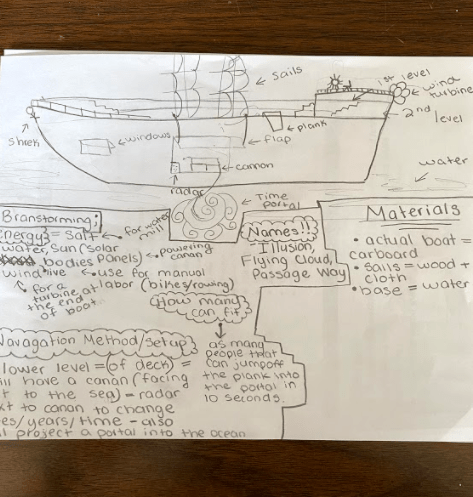 sails
1st level
wind
turbine
2nd
level
plank
flap
shrek
windows
canon
radar
water
Time
portal
Branstorming;
energy = salt
for water
mill
water, sun (solar
bodies panels)
powering
canon
wind, live
use for manual
labor (bikes/rowing)
for a
turbine at
the end
of boat
Names!!
Illusion,
Flying Cloud,
Passage Way
How many
can fit
as many
people that
can jumpoff
the plank into
the portal in
10 seconds.
Materials
• actual boat =
carboard
• sails = wood +
cloth
• base = water
Navagation Method/Setup
lower level = (of deck) =
ill have a canan (facing
t to the sea) - radar
xt to canon to change
es/years/time - also
project a portal into the ocean